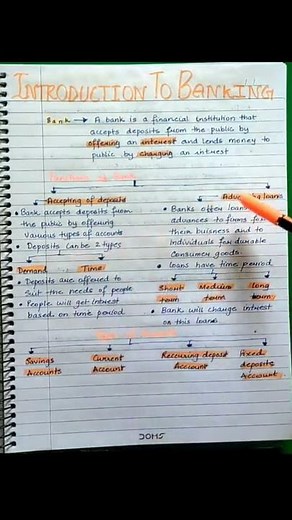 INTRODUCTION TO BANKING
Bank → A bank is a financial institution that
accepts deposits from the public by
offering an interest and lends money to
public by charging an interest
Functions of bank
Accepting of deposits
• Bank accepts deposits from
the public by offering
Various types of accounts
• Deposits can be 2 types
Demand Time
• Deposits are offered to
Suit the needs of people
• People will get interest
based on time period
loans
• Banks offer loans
advances to firms for
their buisness and to
Individuals for durable
Consumer goods
• Loans have time period
Short Medium Long
team team team
• Bank will charge interest
on this loans
Types of
Savings Accounts
Current Account
Reccuring deposit Account
Fixed deposits Account